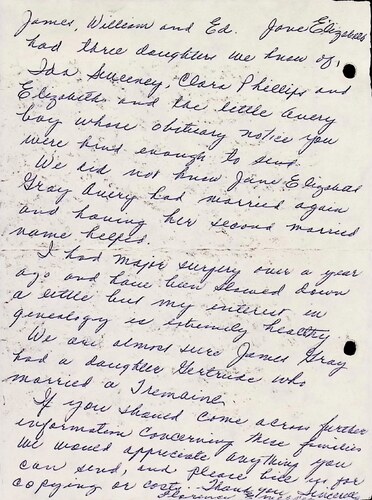 James, William and Ed. Jane Elizabeth
had three daughters we know of,
Ida Sweeney, Clara Phillips and
Elizabeth and the little Avery
boy whose obituary notice you
were kind enough to send.
We did not know Jane Elizabeth
Gray Avery had married again
and having her second married
name helped.
I had major surgery over a year
ago and have been slowed down
a little but my interest in
genealogy is extremely healthy
We are almost sure James Gray
had a daughter Gertrude who
married a Tremaine.
If you should come across further
information concerning these families
we would appreciate anything you
can send, and please bill us for
copying or costs. Thank you, Sincerely
Florence